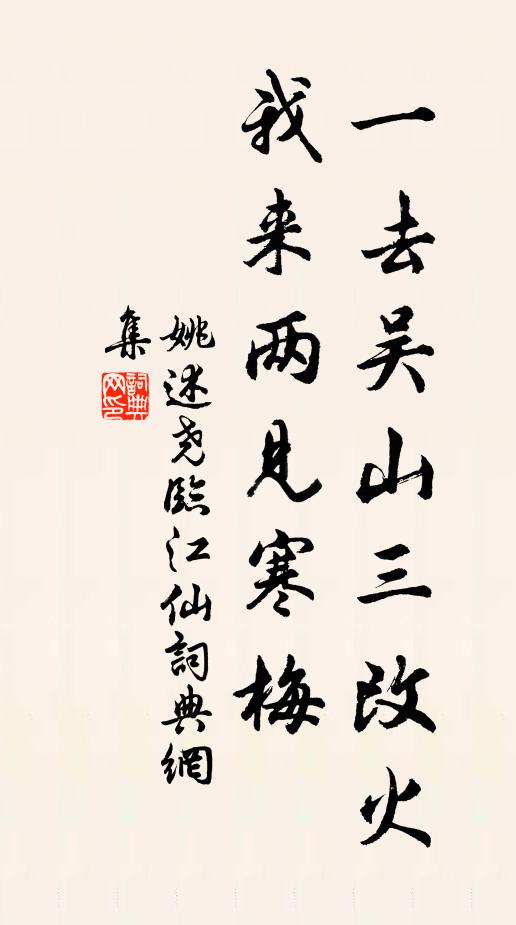 一去吴山三改火
我来两见寒梅
姚述尧臨江仙詞典網
集
詞典网印